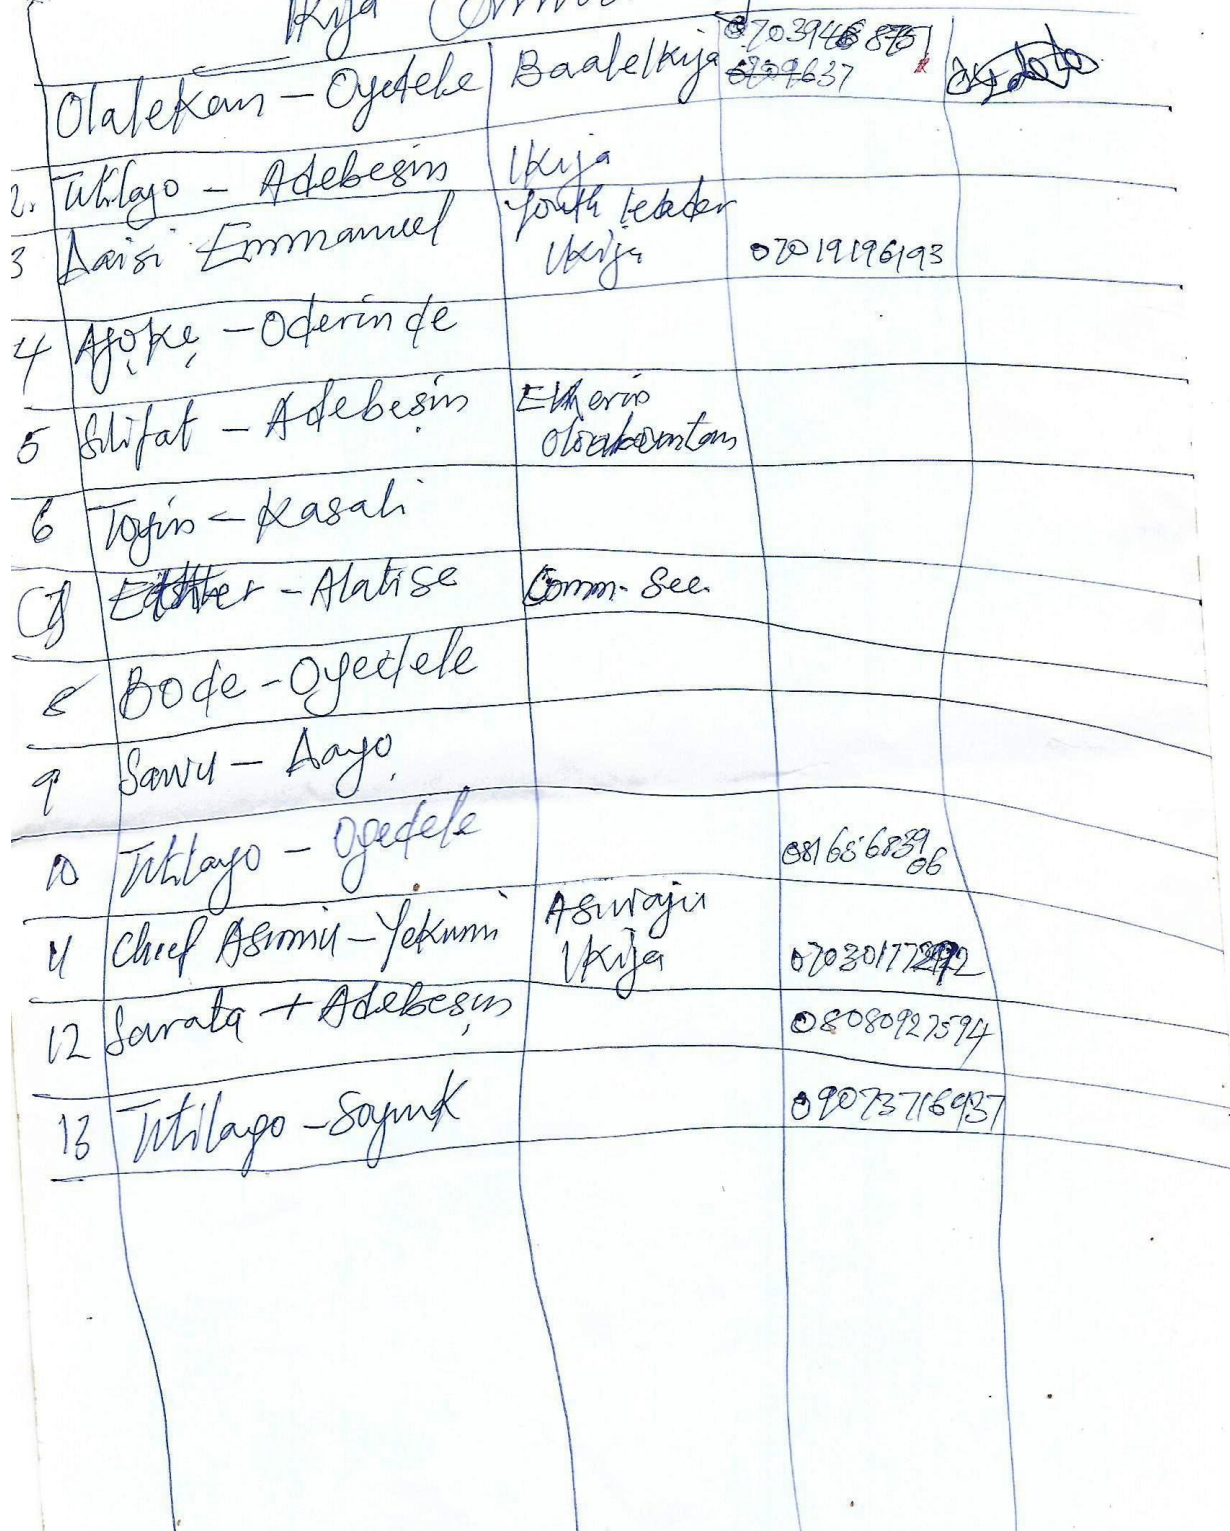 Ikija
Olalekan - Oyedele Baale Ikija
2. Titilayo - Adebesin Ikija
3 Daisi Emmanuel Youth leader
Ikija 07019196193
4 Ajọkẹ - Oderinde
5 Sifat - Adebeṣin
6 Toyin - Kasali
7 Esther - Alatise Comm. Sec.
8 Bode - Oyedele
9 Sawu - Dayọ
10 Titilayo - Oyedele 08165683906
11 Chief Asimiu - Yekinni Asiwaju
Ikija
12 Sarata + Adebeṣin 08080927594
13 Titilayo - 09073716937